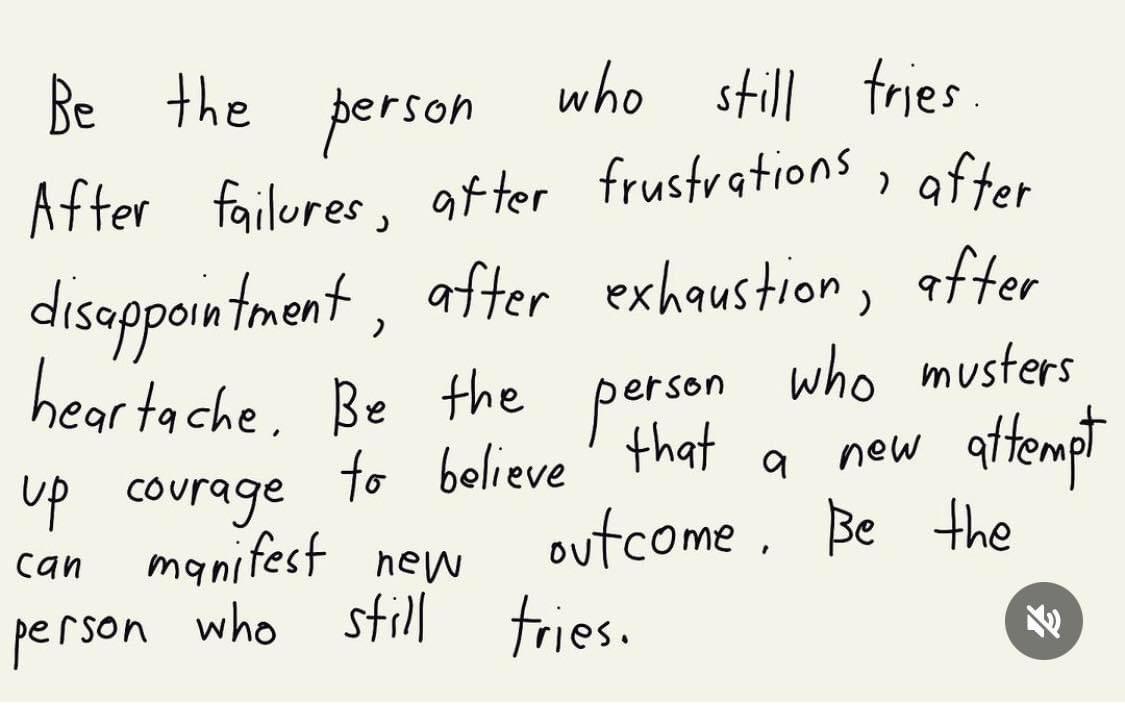 Be the person who still tries.
After failures, after frustrations, after
disappointment, after exhaustion, after
heartache. Be the person who musters
up courage to believe that a new attempt
can manifest new outcome. Be the
person who still tries.